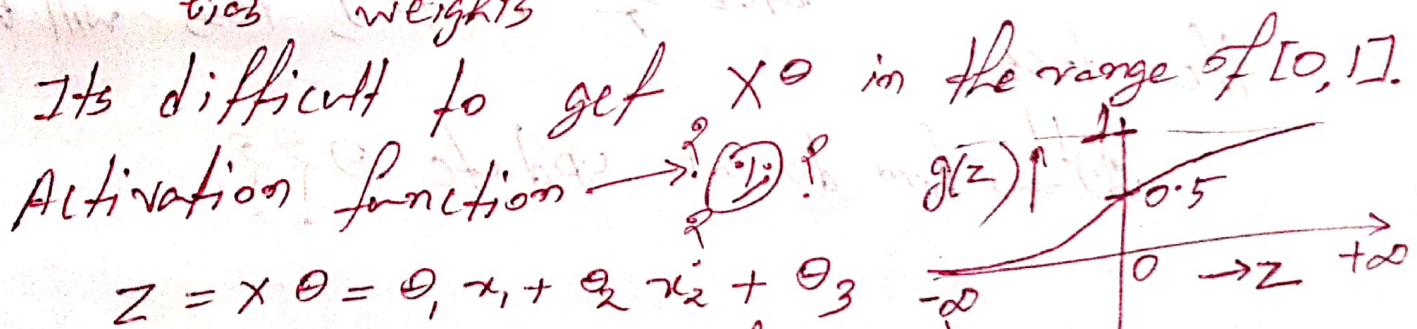 bias weights
Its difficult to get Xθ in the range of [0, 1].
Activation function → ? ? ? ?
g(z)↑ 1 0.5
-∞ 0 →z +∞
z = Xθ = θ₁ x₁ + θ₂ x₂ + θ₃